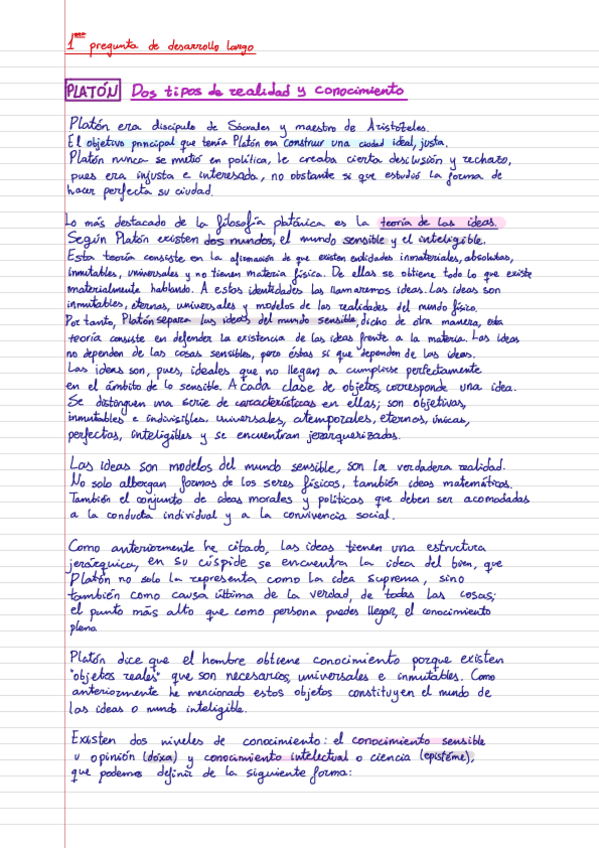 1era pregunta de desarrollo largo
PLATÓN Dos tipos de realidad y conocimiento
Platón era discípulo de Sócrates y maestro de Aristóteles.
El objetivo principal que tenía Platón era construir una ciudad ideal, justa.
Platón nunca se metió en política, le creaba cierta desilusión y rechazo,
pues era injusta e interesada, no obstante si que estudió la forma de
hacer perfecta su ciudad.
Lo más destacado de la filosofía platónica es la teoría de las ideas.
Según Platón existen dos mundos, el mundo sensible y el inteligible.
Esta teoría consiste en la afirmación de que existen entidades inmateriales, absolutas,
inmutables, universales y no tienen materia física. De ellas se obtiene todo lo que existe
materialmente hablando. A estas identidades las llamaremos ideas. Las ideas son
inmutables, eternas, universales y modelos de las realidades del mundo físico.
Por tanto, Platón separa las ideas del mundo sensible, dicho de otra manera, esta
teoría consiste en defender la existencia de las ideas frente a la materia. Las ideas
no dependen de las cosas sensibles, pero éstas si que dependen de las ideas.
Las ideas son, pues, ideales que no llegan a cumplirse perfectamente
en el ámbito de lo sensible. A cada clase de objetos, corresponde una idea.
Se distinguen una serie de características en ellas; son objetivas,
inmutables e indivisibles, universales, atemporales, eternas, únicas,
perfectas, inteligibles y se encuentran jerarquerizadas.
Las ideas son modelos del mundo sensible, son la verdadera realidad.
No solo albergan formas de los seres físicos, también ideas matemáticas.
También el conjunto de ideas morales y políticas que deben ser acomodadas
a la conducta individual y a la convivencia social.
Como anteriormente he citado, las ideas tienen una estructura
jerárquica, en su cúspide se encuentra la idea del bien, que
Platón no solo la representa como la idea suprema, sino
también como causa última de la verdad, de todas las cosas;
el punto más alto que como persona puedes llegar, el conocimiento
pleno.
Platón dice que el hombre obtiene conocimiento porque existen
"objetos reales" que son necesarios, universales e inmutables. Como
anteriormente he mencionado estos objetos constituyen el mundo de
las ideas o mundo inteligible.
Existen dos niveles de conocimiento: el conocimiento sensible
u opinión (doxa) y conocimiento intelectual o ciencia (epistéme),
que podemos definir de la siguiente forma: